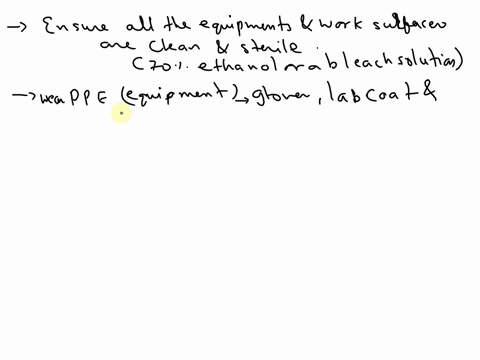 → Ensure all the equipments & work surfaces
are clean & sterile.
(70% ethanol or a bleach solution)
→ wear PPE (equipment) → gloves, lab coat &